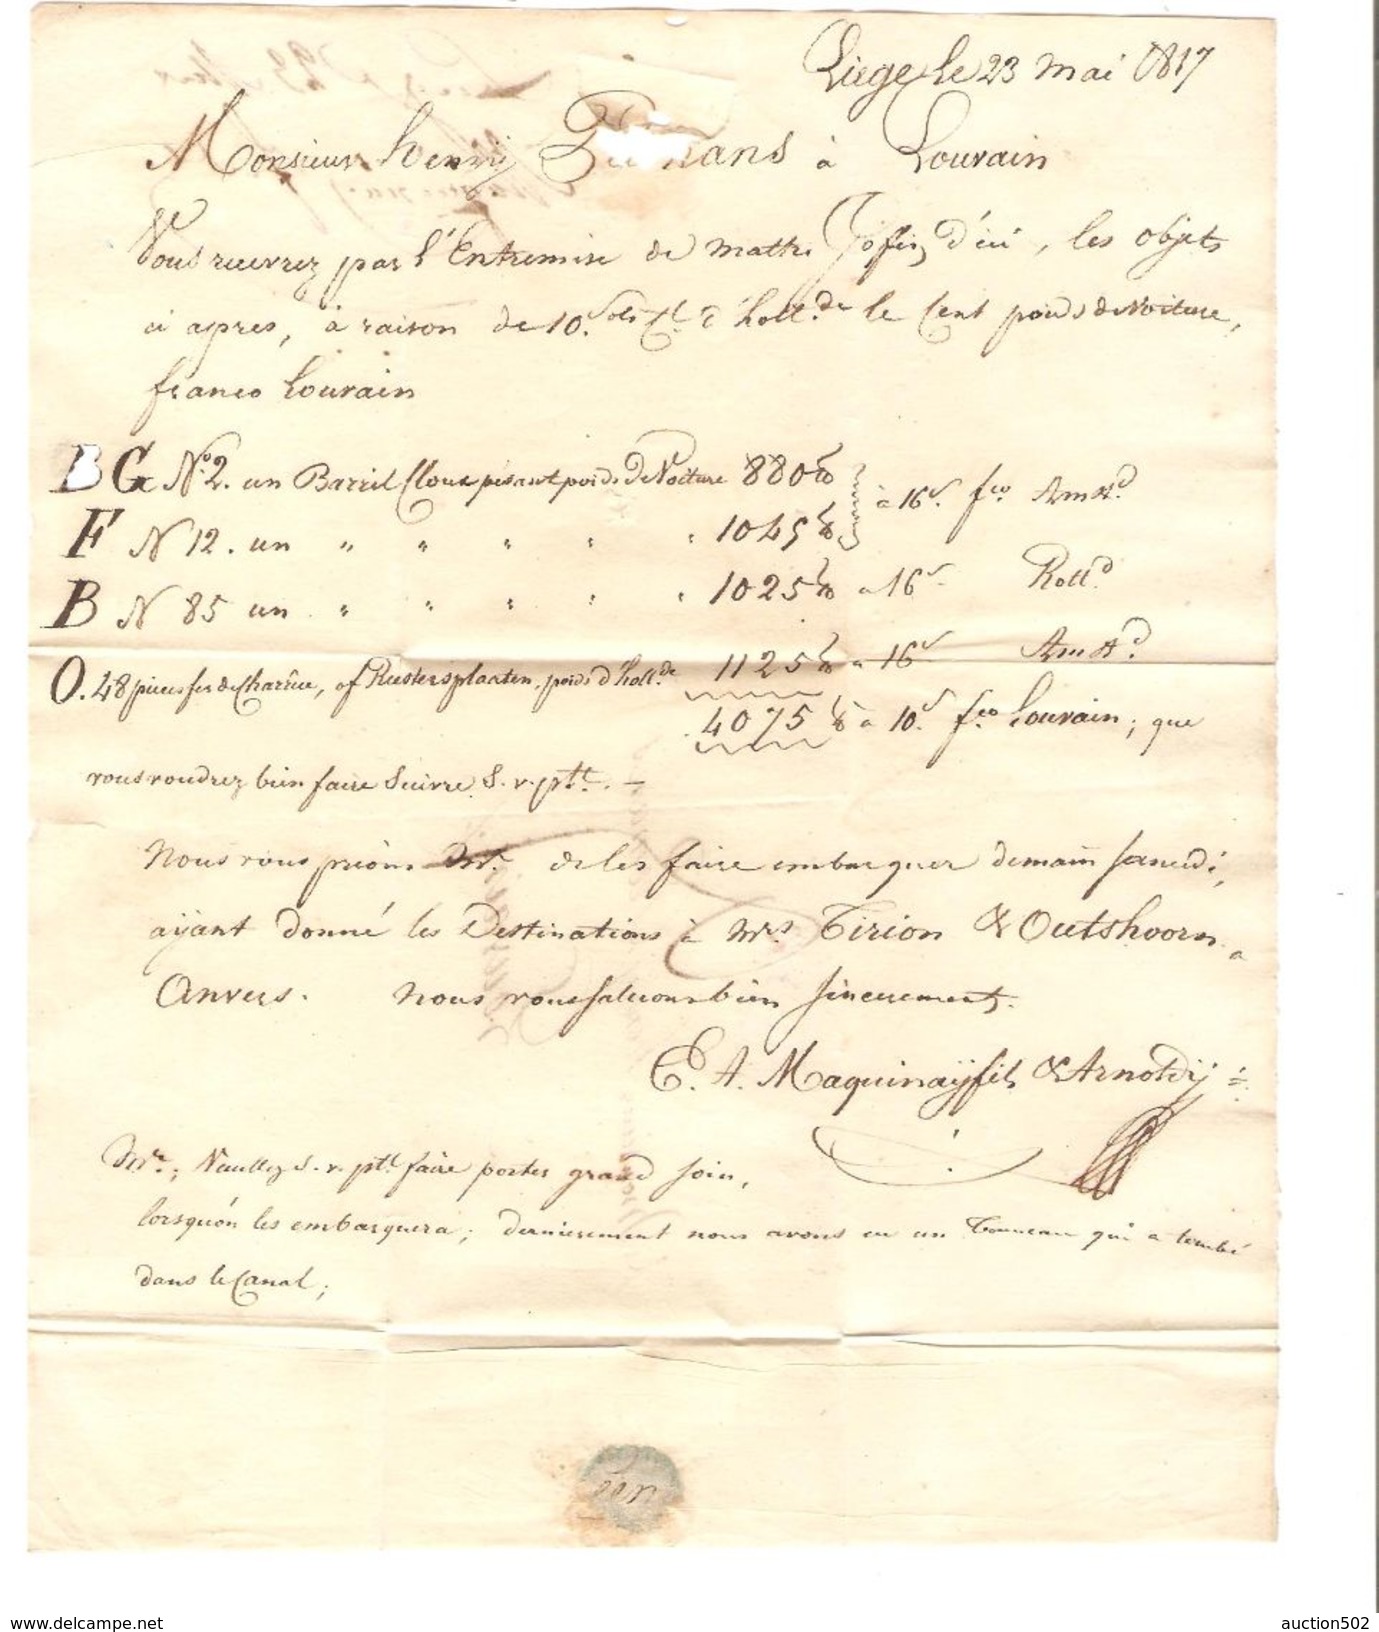 Liege Le 23 Mai 1817
Monsieur henry à Louvain
Vous recevrez par l'Entremise de Mathi d'ici, les objets
ci apres, à raison de 10. sols d'holl.de le Cent poids de Voiture,
franco Louvain
B G No. 2. un Barril Cloux pesant poids de Voiture 880 lb à 16s. fco Amstd.
F N 12. un " " " " " 1045 lb
B N 85 un " " " " " 1025 lb a 16s Rottd.
O. 48 pieces fer de Charrüe, of Ruestersplaaten, poids d'holl.de 1125 lb a 16s Amstd.
4075 lb a 10s. fco. Louvain; que
vous voudrez bien faire Suivre S. v. ptt. —
Nous vous prions Mr. de les faire embarquer demain samedi,
ayant donné les Destinations à Mrs Tirion & Outshoorn a
Anvers. Nous vous saluons bien sincerement.
E. A. Maquinaÿ fils & Arnoldÿ
Mr., Veuillez S. v. ptt faire porter grand soin,
lorsqu'on les embarquera; dernierement nous avons eu un Tonneau qui a tombé
dans le Canal;
www.delcampe.net
auction502